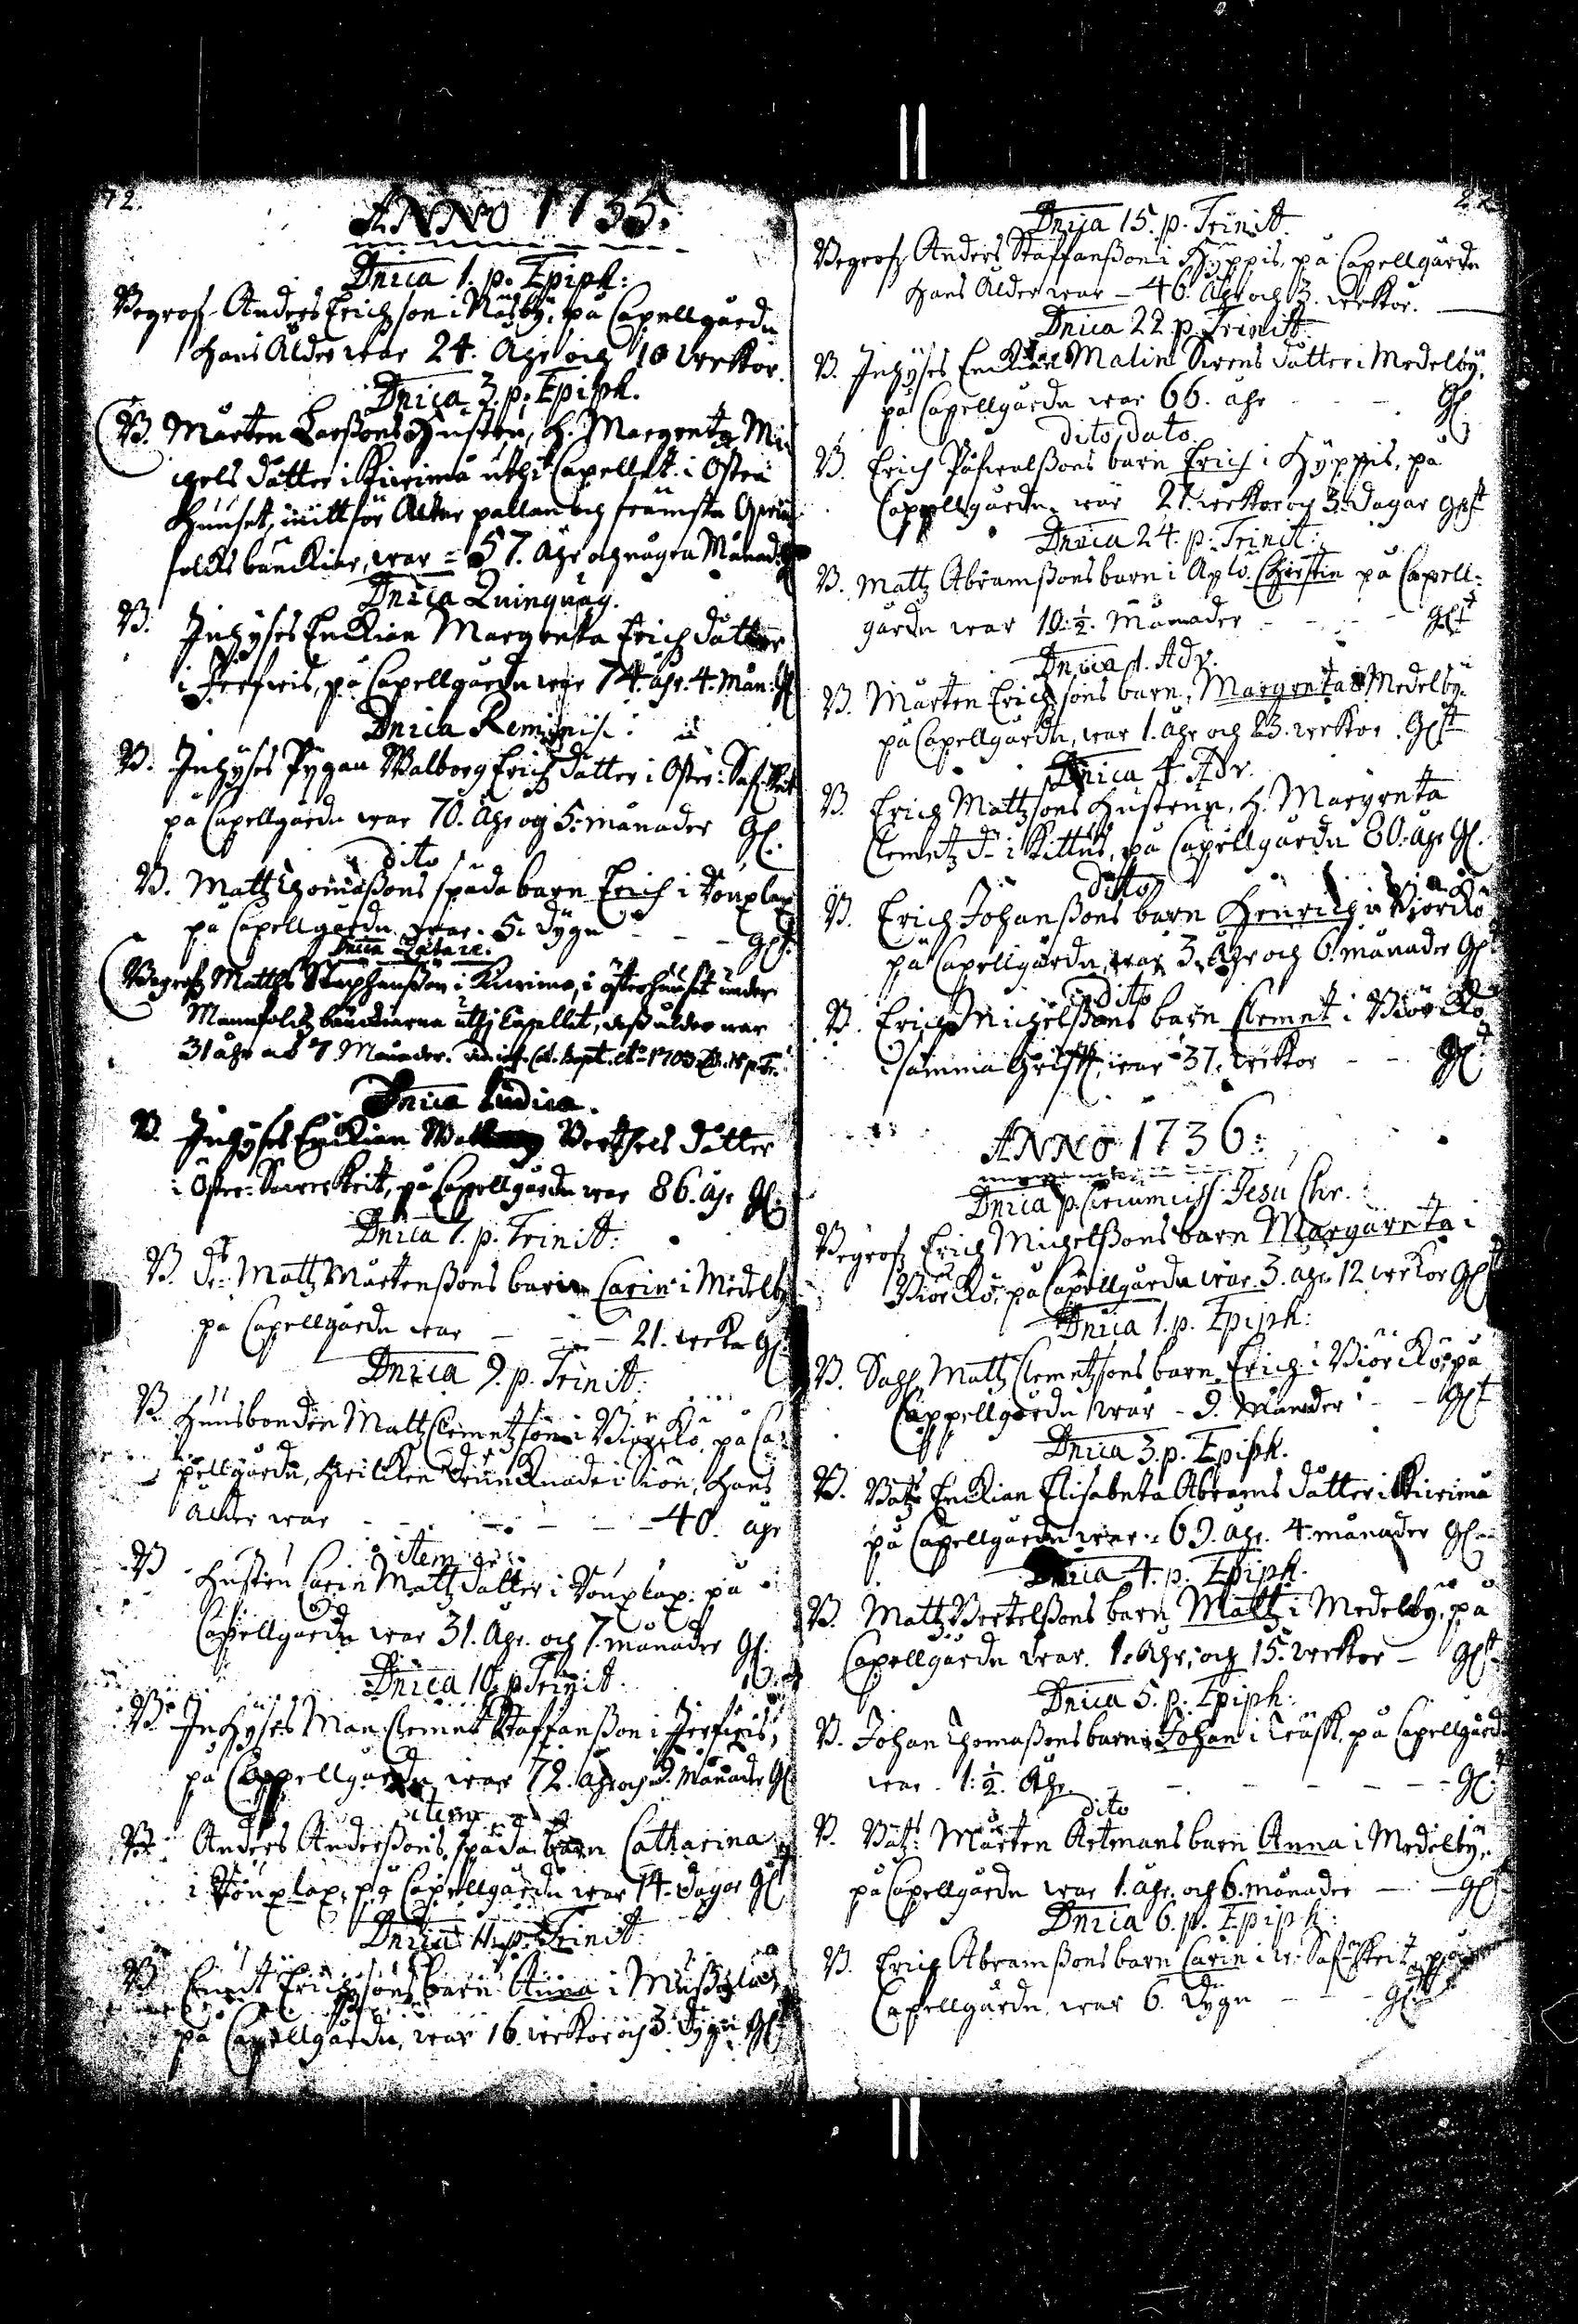 72.
ANNO 1735.
Dnica 1. p. Epiph:
Begrofz Anders Erichson i Näsby, på Capellgårdn
Hans Ålder war 24. Åhr och 10 weckor.
Dnica 3. p. Epiph.
B. Mårten Larßons Hustru, H. Margreta Mi-
chels dätter i Kiurima uthi Capellet i Östra
Huuset, mitt för Altar pallan och främste Qwin
folcks bänckiar, war = 57. Åhr och några Månad.
Dnica Quinquag.
B. Inhyses Enckian Margreta Erich dätter
i Jerfwis, på Capellgårdn war 74. åhr. 4. Mån: Gl
Dnica Reminisc:
B. Inhyses Pygan Walborg Erich dätter i Öster: Saf.
på Capellgårdn war 70. Åhr och 5. månader Gl.
dito
B. Matt Thomaßons späda barn Erich i Vouplax
på Capellgårdn war. 5. dygn - - - Glt.
Dnica Lætare.
Begrofz Matths Staphanßon i Kiurima, i österhuuset under
Mannfolcks bänckiarna uthj Capellet, deß ålder war
31 åhr och 7 Månader.
Dnica Judica.
B. Inhyses Enckian Berthels dätter
i Öster: Sawerkeit, på Capellgårdn war 86. åhr Gl.
Dnica 7. p. Trinit:
B. Dr: Matz Mårtenßons barn Carin i Medelby
på Capellgårdn war - - - 21. weckor Gl.
Dnica 9. p. Trinit:
B. Huusbonden Matz Clemetzson i Biörkö, på Ca-
pellgårdn, hwilcken drunknade i siön, hans
ålder war - - - - - 40. åhr
item
B. Hustru Carin Matz dåtter i Vouplax: på
Capellgårdn war 31. Åhr. och 7. månader Gl.
Dnica 10. p. Trinit.
B. Inhyses Man Clemet Staffanßon i Jerfwis,
på Cappellgårdn war 72. åhr och 9. Månader Gl
item
B. Anders Anderßons, späda barn Catharina
i Vouplax, på Capellgårdn war 14. dagar Glt
Dnica 11. p. Trinit.
B. Erichsons barn Anna i
på Capellgårdn, war 16. weckor och 3. dygn Glt
Dnica 15. p. Trinit.
Begrofz Anders Staffanßon i Hyppis, på Capellgårdn
Hans Ålder war - 46. Åhr och 3. weckor.
Dnica 22. p. Trinit:
B. Inhyses Enckian Malin Swens dätter i Medelby,
på Capellgårdn war 66. åhr - - - Gl.
dito dato
B. Erich Påfwalßons barn Erich i Hyppis, på
Cappellgårdn. war 27. weckor och 3. dagar Glt
Dnica 24. p. Trinit:
B. Matz Abramßons barn i Aplö. Christin på Capell-
gårdn war 10. ½. Månader - - - - Glt
Dnica 1. Adv.
B. Mårten Erichsons barn, Margreta i Medelby.
på Capellgårdn, war 1. åhr och 23. weckor. Glt
Dnica 4. Adv.
B. Erich Mattzsons Hustrun, H. Margreta
Clemetz d- i Kittus, på Capellgårdn 80. åhr Gl.
Ditto
B. Erich Johanßons barn Henrich i Biörkö
på Capellgårdn, war 3. Åhr och 6. månader Glt
dito
B. Erich Michelßons barn Clemet i Biörkö
i samma Grift, war 37. weckor - - Glt
ANNO 1736:
Dnica p. Circumciss. Jesu Chr.
Begrofz Erich Michelßons barn Margareta i
Biörkö, på Capellgårdn war 3. åhr. 12 weckor Glt
Dnica 1. p. Epiph:
B. Matz Clemetzsons barn Erich i Biörkö, på
Cappellgårdn war - 9. Månader - - Glt
Dnica 3. p. Epiph.
B. Båtz: Enckian Elisabeta Abrams dätter i Kiurima
på Capellgårdn war = 69. åhr. 4. månader Gl.
Dnica 4. p. Epiph.
B. Matz Bertelßons barn Matz i Medelby, på
Capellgårdn war. 1. åhr, och 15. weckor - Glt
Dnica 5. p. Epiph:
B. Johan Thomaßons barn Johan i Träsk, på Capellgård
war. 1: ½. åhr - - - - - Glt
dito
B. Båtz: Mårten Artmans barn Anna i Medelby,
på Capellgårdn war 1. åhr. och 6. månader - - Glt
Dnica 6. p. Epiph:
B. Erich Abramßons barn Carin i
Capellgårdn war 6. dygn - - - Glt